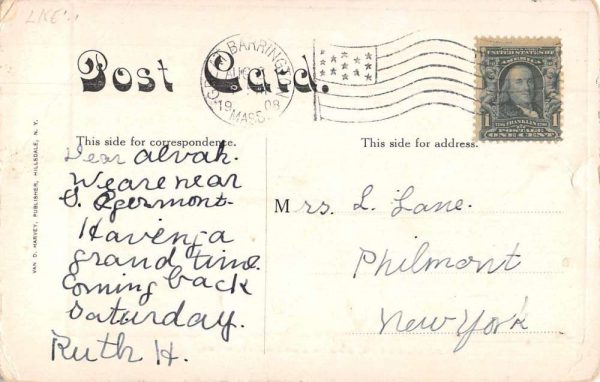 LAKE
Post Card.
GREAT BARRINGTON
AUG
1908
MASS.
UNITED STATES OF AMERICA
FRANKLIN
1 POSTAGE 1
ONE CENT
This side for correspondence.
This side for address.
VAN D. HARVEY, PUBLISHER, HILLSDALE, N. Y.
Dear alvah.
We are near
S. Egermont.
Having a
grand time.
Coming back
Saturday.
Ruth H.
Mrs. L. Lane.
Philmont
New York